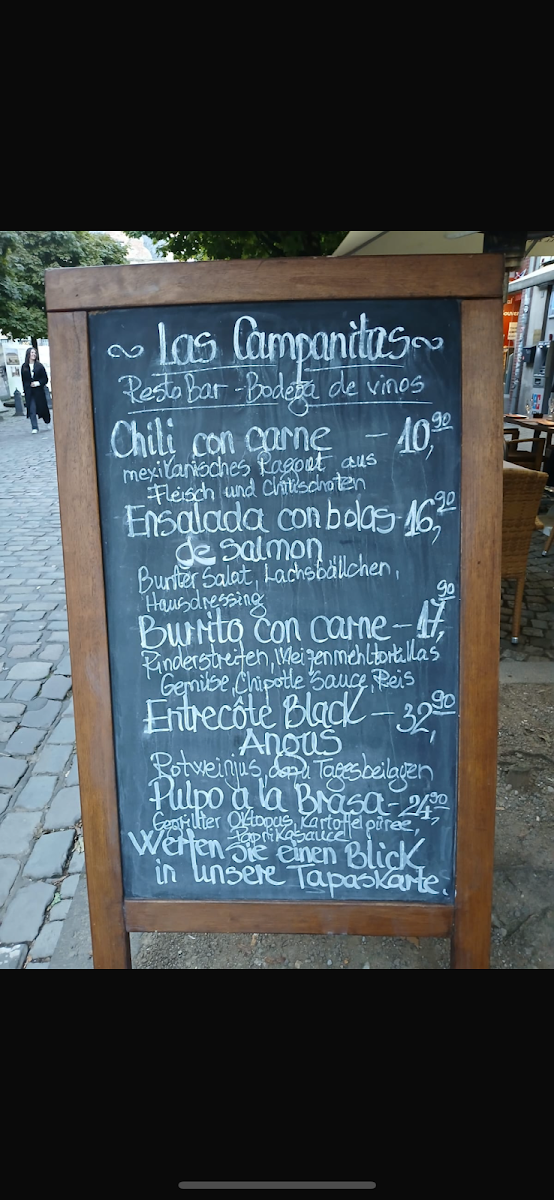 ~ Las Campanitas ~
Resto Bar - Bodega de vinos
Chili con carne - 10,90
mexikanisches Ragout aus
Fleisch und Chilischoten
Ensalada con bolas - 16,90
de salmon
Bunter Salat, Lachsbällchen,
Hausdressing
Burrito con carne - 17,90
Rinderstreifen, Weizenmehltortillas
Gemüse, Chipotle Sauce, Reis
Entrecôte Black - 32,90
Angus
Rotweinjus, dazu Tagesbeilagen
Pulpo a la Brasa - 24,90
Gegrillter Oktopus, Kartoffelpüree,
Paprikasauce
Werfen Sie einen Blick
in unsere Tapaskarte.